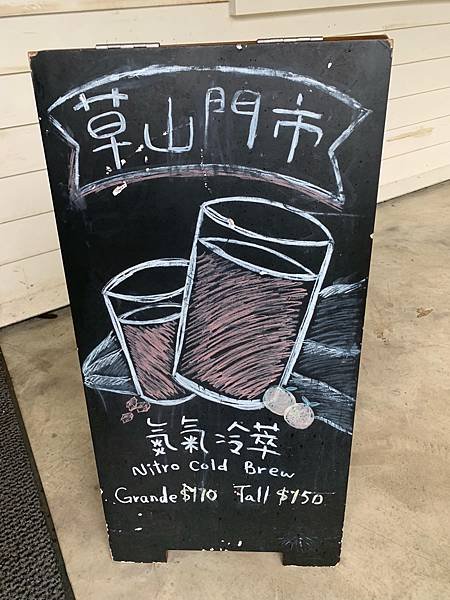 草山門市
氮氣冷萃
Nitro Cold Brew
Grande $170 Tall $150